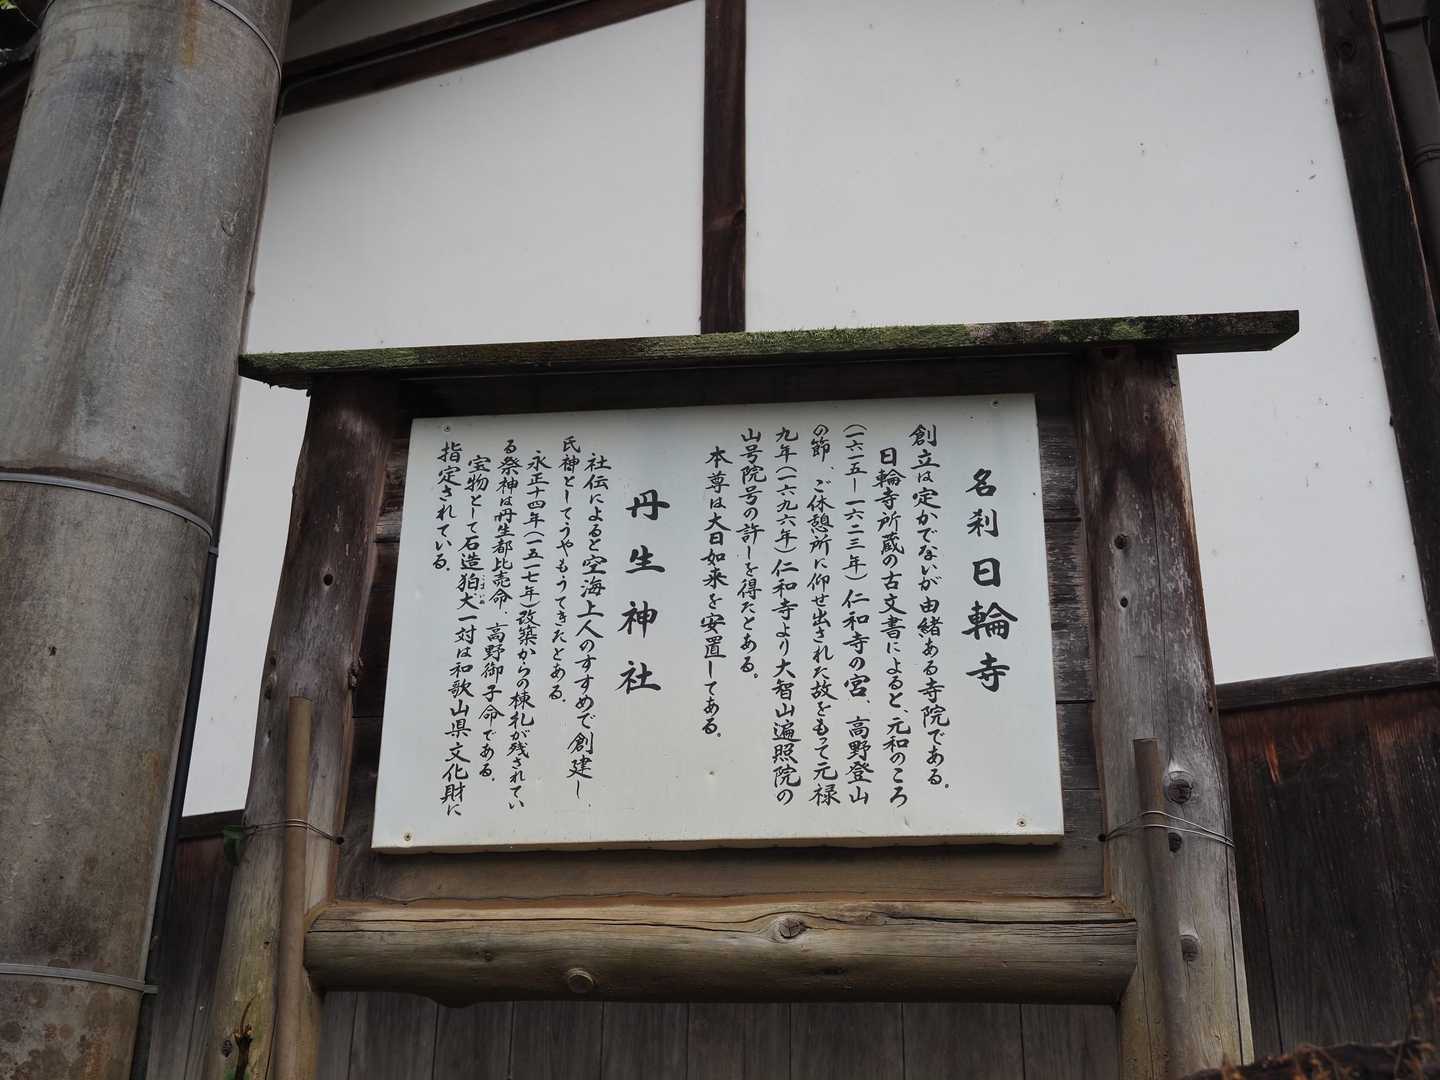 名刹日輪寺
創立は定かでないが由緒ある寺院である。
日輪寺所蔵の古文書によると、元和のころ
(一六一五ー一六二三年)仁和寺の宮、高野登山
の節、ご休憩所に仰せ出された故をもって元禄
九年(一六九六年)仁和寺より大智山遍照院の
山号院号の許しを得たとある。
本尊は大日如来を安置してある。
丹生神社
社伝によると空海上人のすすめで創建し、
氏神としてうやもうてきたとある。
永正十四年(一五一七年)改築からの棟札が残されてい
る祭神は丹生都比売命、高野御子命である。
宝物として石造狛犬一対は和歌山県文化財に
指定されている。